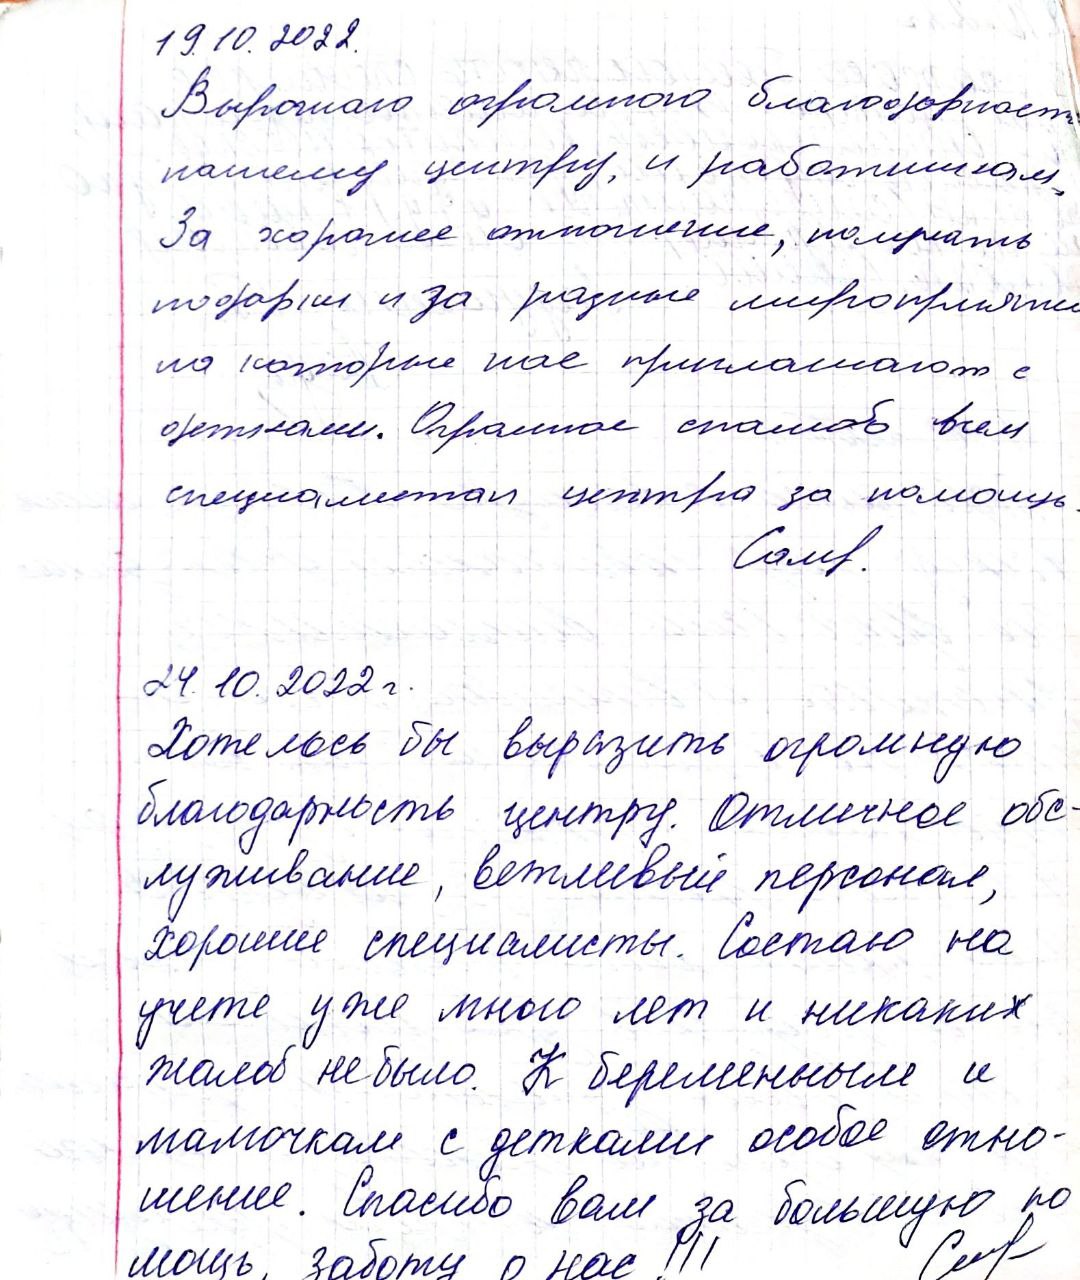 19.10.2022.
Выражаю огромного благодарность
нашему центру, и работникам,
За хорошее отношение, получать
подарки и за разные мироприятии
на которые нас приглашают с
детками. Огромное спасиб всем
специалистам центра за помощь.
24.10.2022г.
Хотелось бы выразить огромную
благодарность центру. Отличное обс-
луживание, вежливый персонал,
хорошие специалисты. Состаю на
учете уже много лет и никаких
жалоб не было. К беременным и
мамочкам с детками особое отно-
шение. Спасибо вам за большую по
мощь, заботу о нас!!!